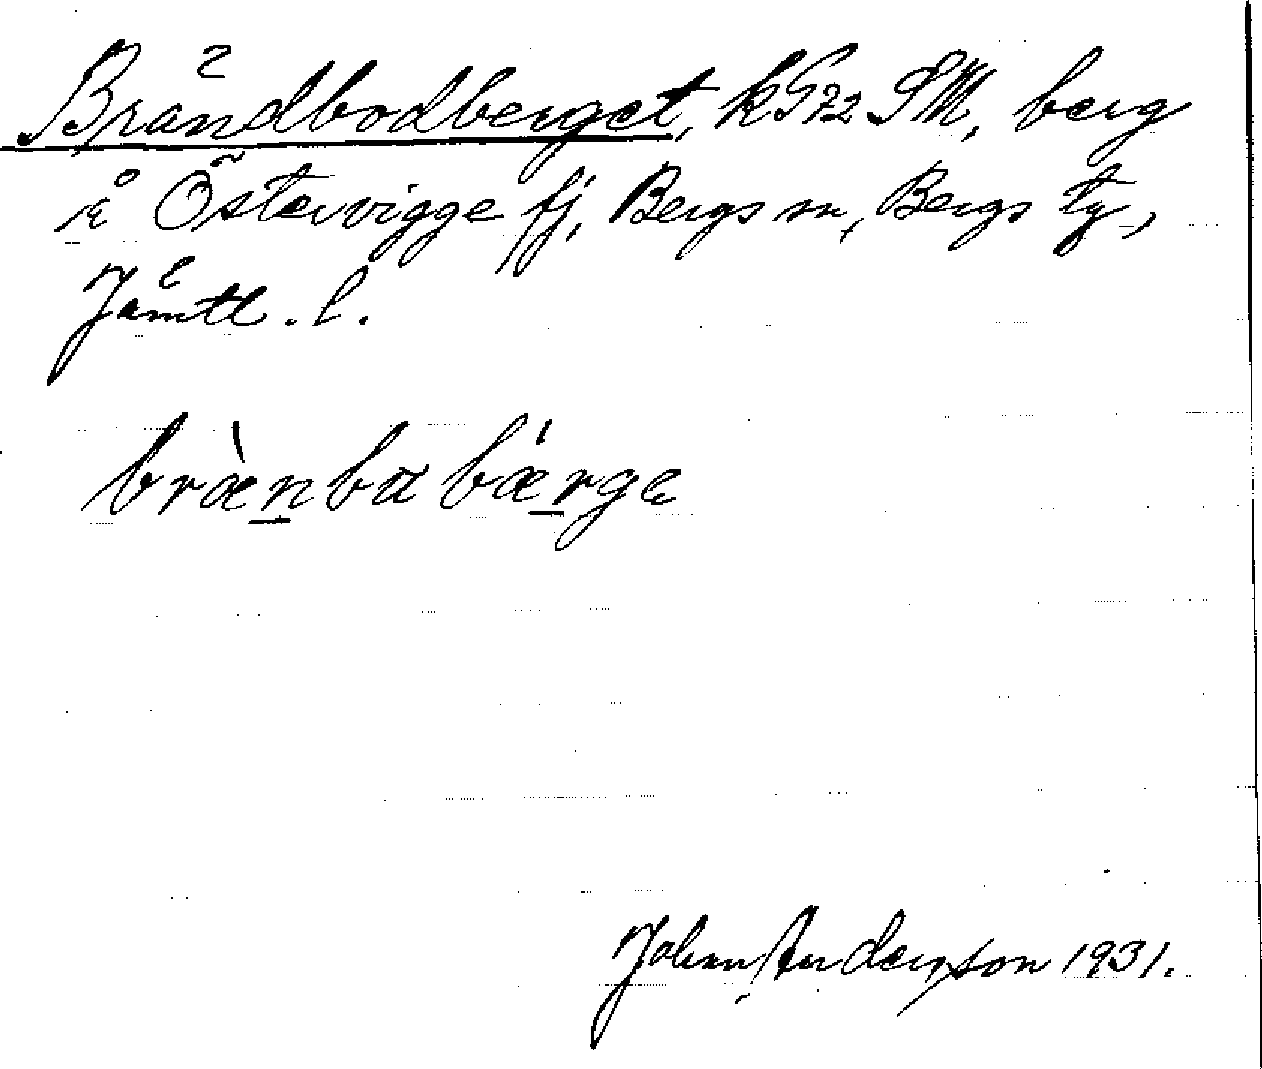 Brändbodberget, kS72 SM, berg
i Östervigge fj, Bergs sn, Bergs tg,
Jämtl. l.
bræ̀nba bǽrge
Johan Anderson 1931.